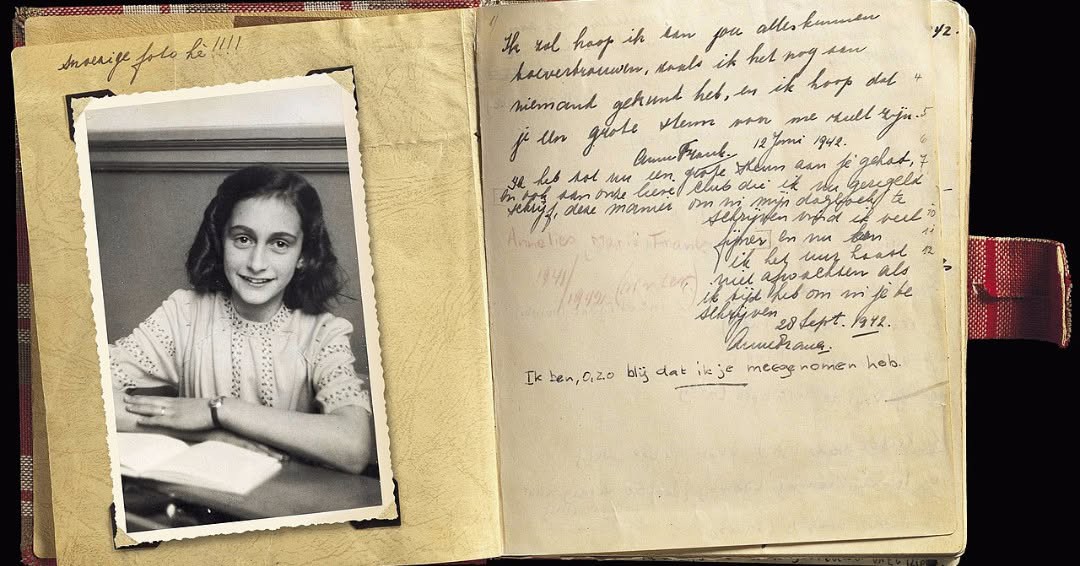 snoezige foto hè!!!!
Ik zal hoop ik aan jou alles kunnen
toevertrouwen, zoals ik het nog aan
niemand gekund heb, en ik hoop dat
je een grote steun voor me zult zijn.
Anne Frank. 12 Juni 1942.
Ik heb tot nu een grote steun aan je gehad,
en ook aan onze lieve club die ik nu geregeld
schrijf, deze manier om in mijn dagboek te
schrijven vind ik veel
fijner en nu kan
ik het uur haast
niet afwachten als
ik tijd heb om in je te
schrijven
28 Sept. 1942.
Anne Frank.
Ik ben, o, zo blij dat ik je meegenomen heb.
42.
4
5
6
7
10
11
12
Annelies Marie Frank
1941/
1942.